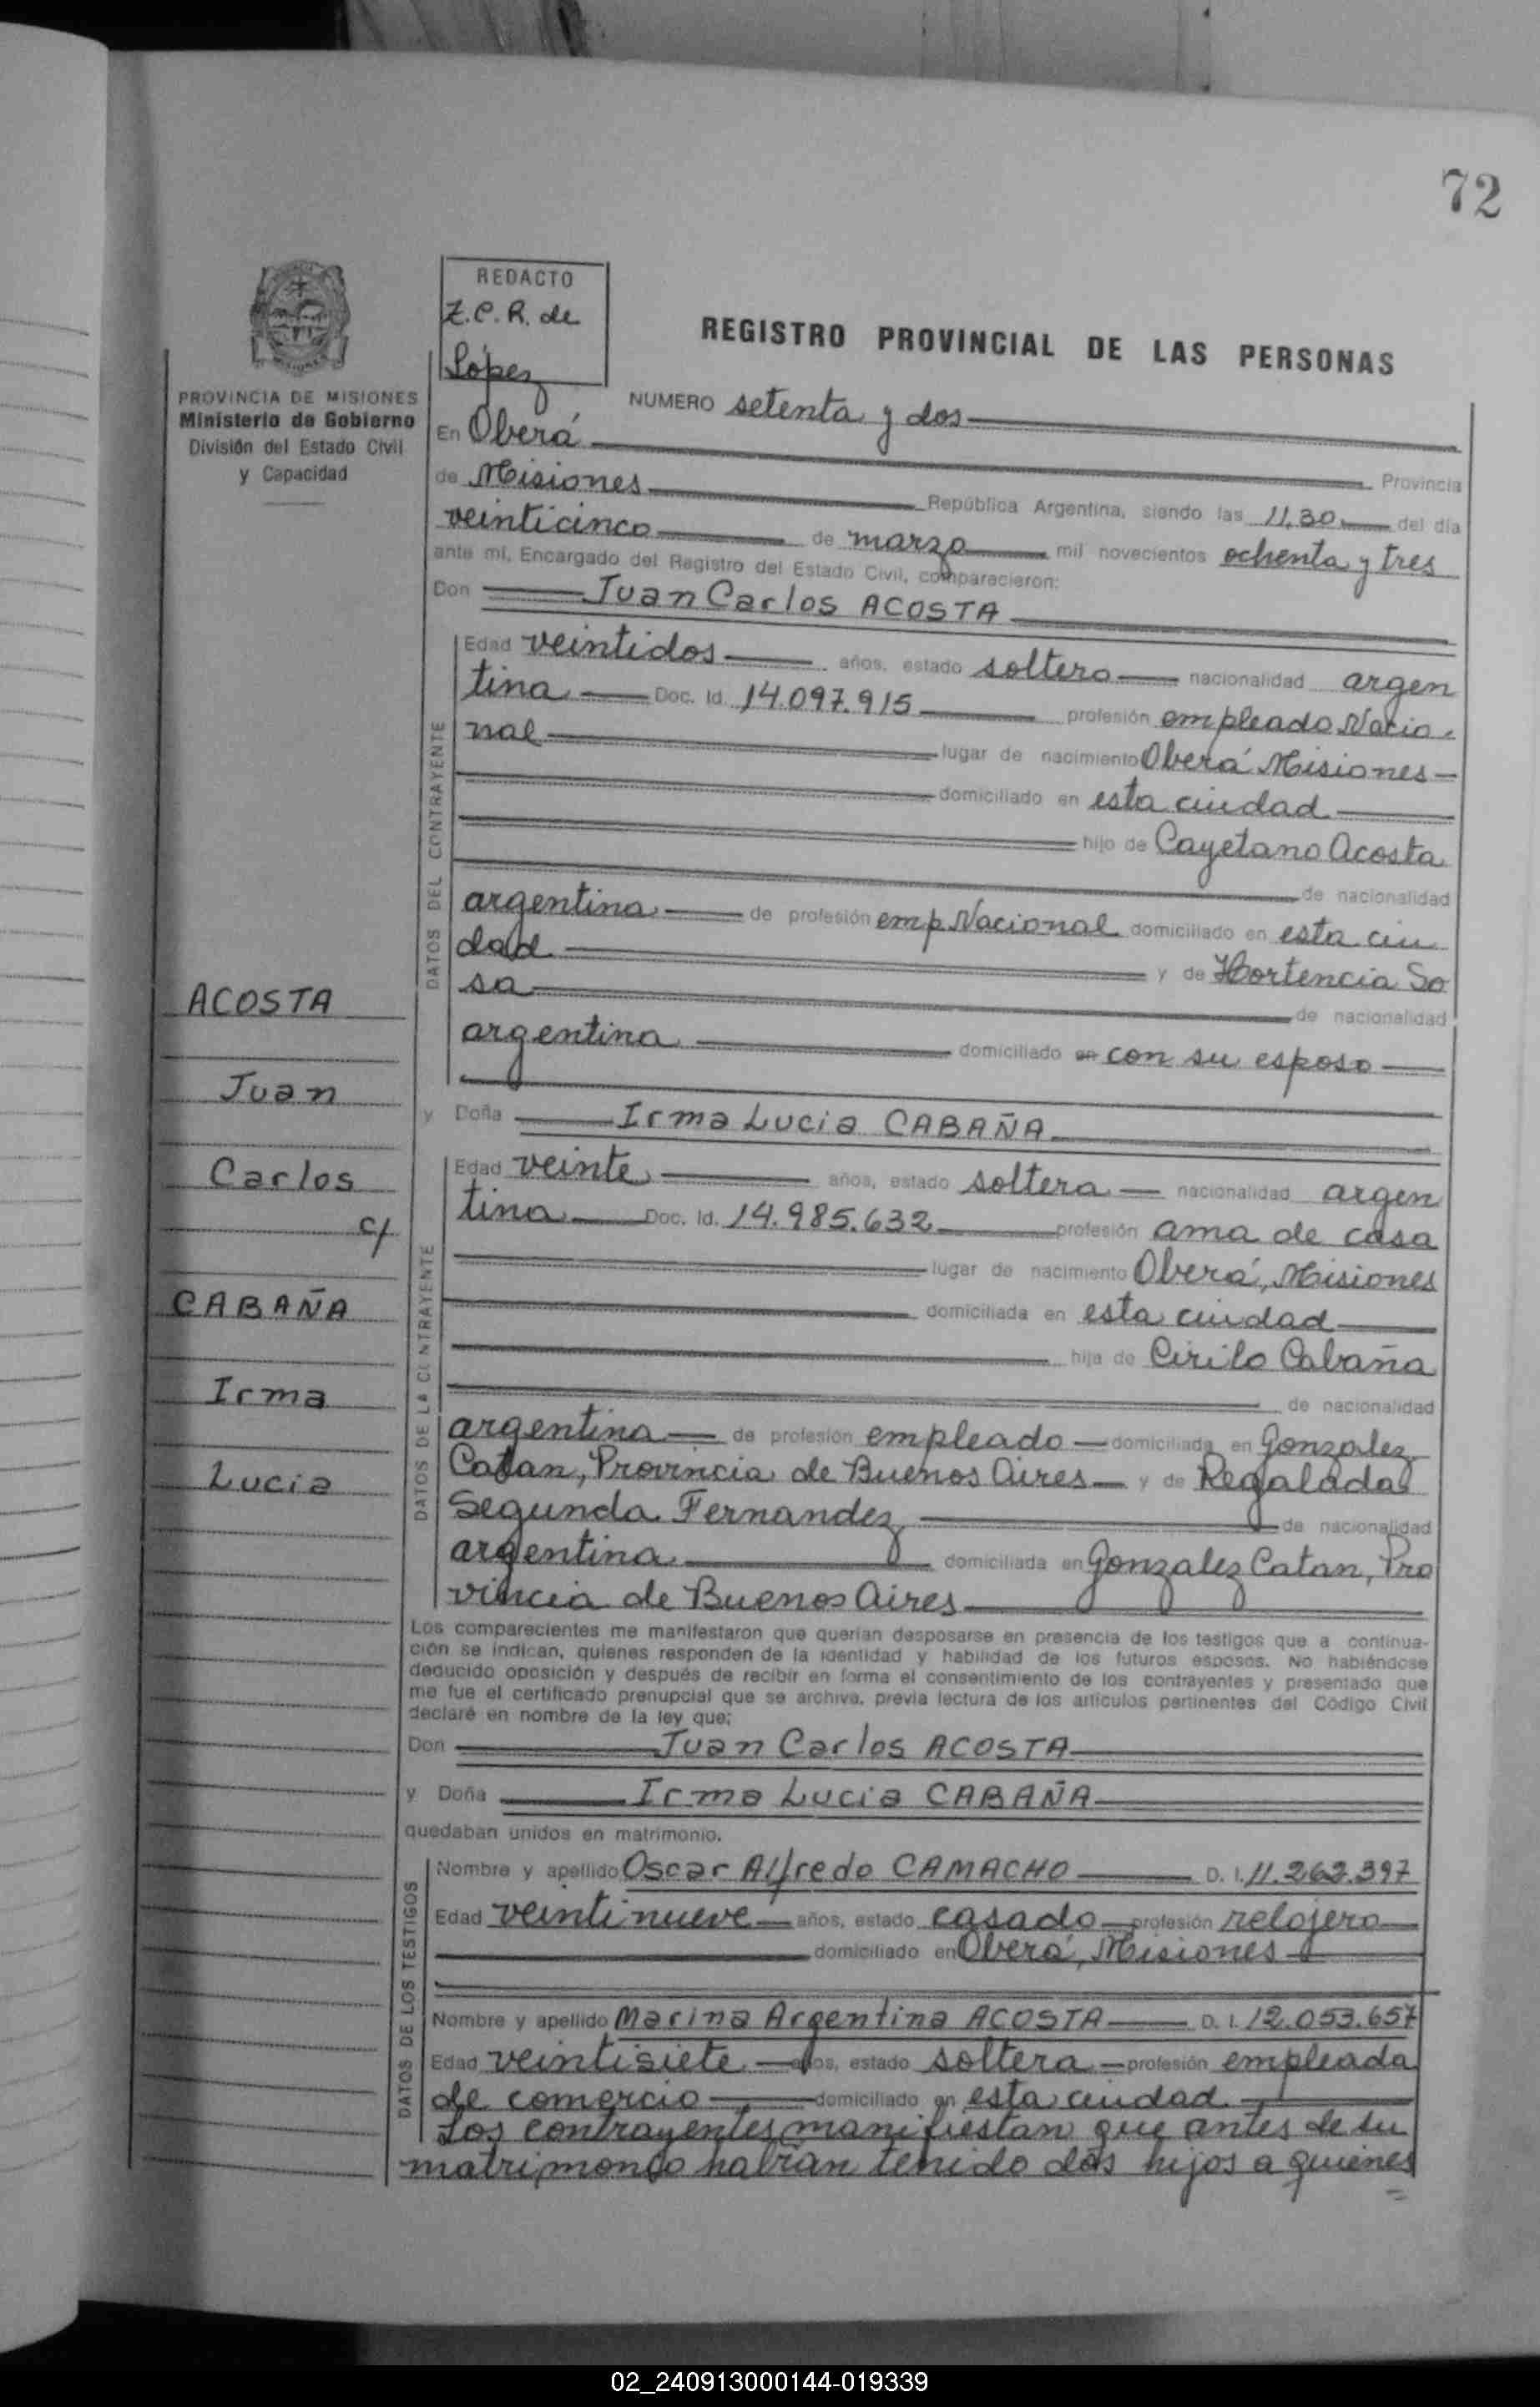 72
REDACTO
Z.C.R. de
López
REGISTRO PROVINCIAL DE LAS PERSONAS
PROVINCIA DE MISIONES
Ministerio de Gobierno
División del Estado Civil
y Capacidad
NUMERO setenta y dos
En Oberá Provincia
de Misiones República Argentina, siendo las 11,30 del día
veinticinco de marzo mil novecientos ochenta y tres
ante mí, Encargado del Registro del Estado Civil, comparecieron:
Don Juan Carlos ACOSTA
DATOS DEL CONTRAYENTE
Edad veintidos años, estado soltero nacionalidad argen
tina Doc. Id. 14.097.915 profesión empleado Nacio
nal lugar de nacimiento Oberá Misiones
domiciliado en esta ciudad
hijo de Cayetano Acosta
de nacionalidad
argentina de profesión emp. Nacional domiciliado en esta ciu
dad y de Hortencia So
sa de nacionalidad
argentina domiciliado en con su esposo
y Doña Irma Lucia CABAÑA
DATOS DE LA CONTRAYENTE
Edad veinte años, estado soltera nacionalidad argen
tina Doc. Id. 14.985.632 profesión ama de casa
lugar de nacimiento Oberá, Misiones
domiciliada en esta ciudad
hija de Cirilo Cabaña
de nacionalidad
argentina de profesión empleado domiciliada en Gonzalez
Catan, Provincia de Buenos Aires y de Regalada
Segunda Fernandez de nacionalidad
argentina domiciliada en Gonzalez Catan, Pro
vincia de Buenos Aires
Los comparecientes me manifestaron que querían desposarse en presencia de los testigos que a continua-
ción se indican, quienes responden de la identidad y habilidad de los futuros esposos. No habiéndose
deducido oposición y después de recibir en forma el consentimiento de los contrayentes y presentado que
me fue el certificado prenupcial que se archiva, previa lectura de los artículos pertinentes del Código Civil
declaré en nombre de la ley que:
Don Juan Carlos ACOSTA
y Doña Irma Lucia CABAÑA
quedaban unidos en matrimonio.
DATOS DE LOS TESTIGOS
Nombre y apellido Oscar Alfredo CAMACHO D. I. 11.262.397
Edad veintinueve años, estado casado profesión relojero
domiciliado en Oberá, Misiones
Nombre y apellido Marina Argentina ACOSTA D. I. 12.053.657
Edad veintisiete años, estado soltera profesión empleada
de comercio domiciliado en esta ciudad
Los contrayentes manifiestan que antes de su
matrimonio habian tenido dos hijos a quienes
ACOSTA
Juan
Carlos
c/
CABAÑA
Irma
Lucia
02_240913000144-019339